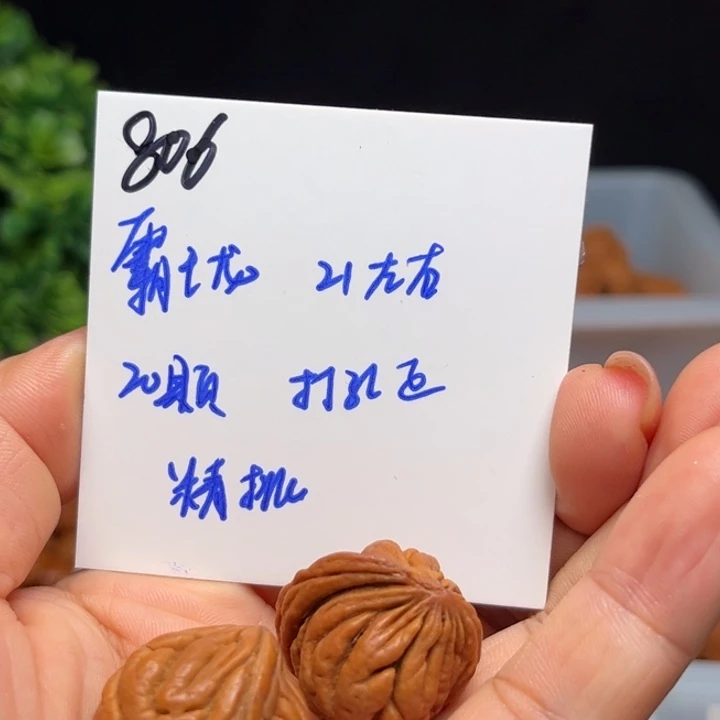 806
霸王龙 21左右
20颗 打孔区
精挑